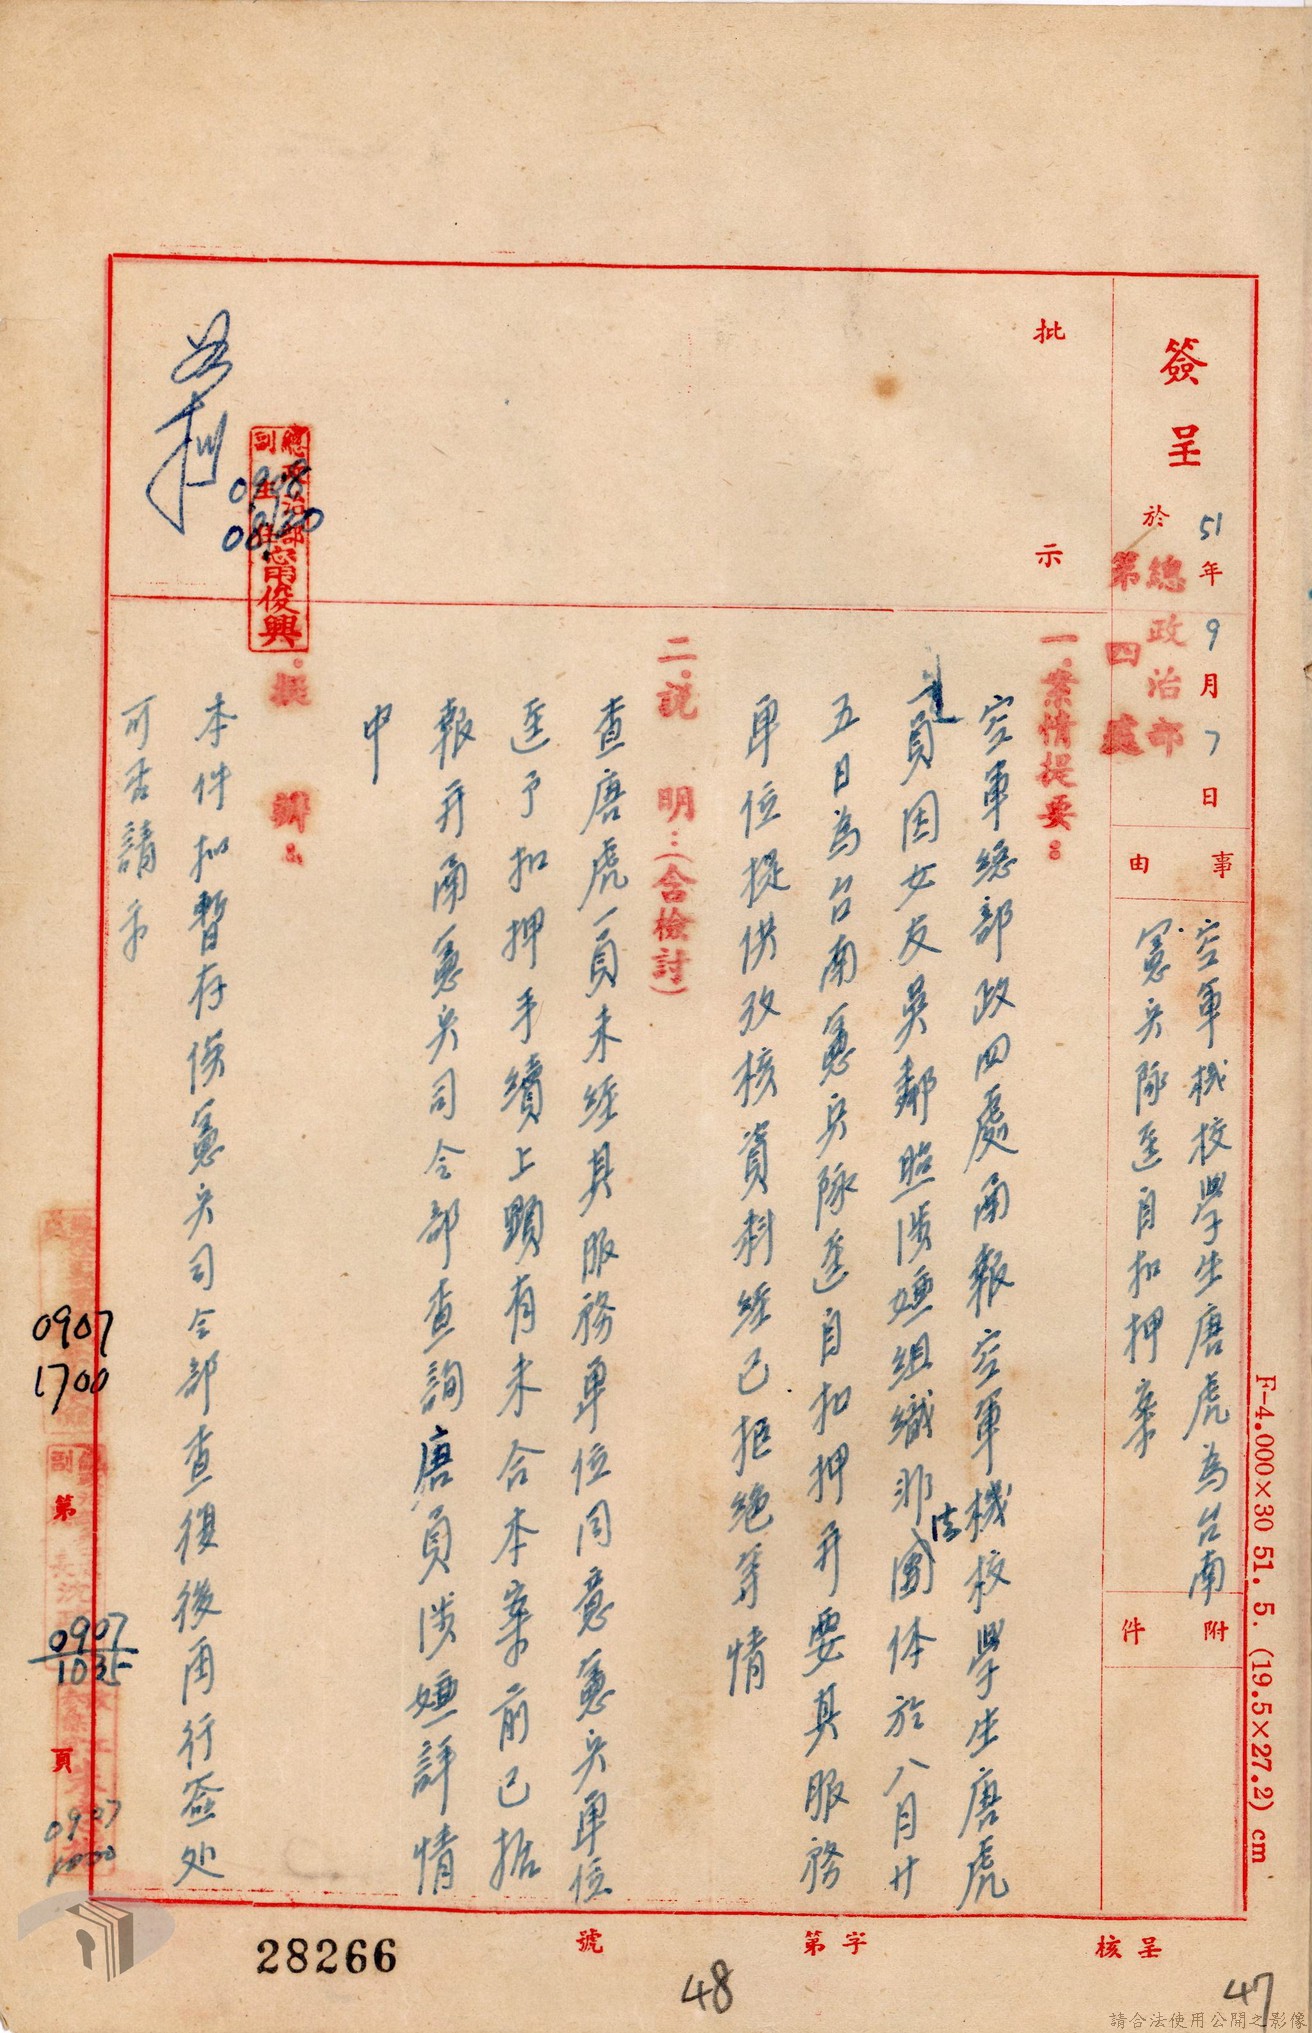 簽呈
51年9月7日
於
總政治部
第四處
事由
空軍機校學生唐虎為台南
憲兵隊逕自扣押案
附件
批示
一.案情提要：
空軍總部政四處函報空軍機校學生唐虎
一員因女友吳鄰照涉嫌組織非法團体於八月廿
五日為台南憲兵隊逕自扣押并要其服務
單位提供攷核資料經已拒絕等情
二.說明：（含檢討）
查唐虎一員未經其服務單位同意憲兵單位
逕予扣押手續上顯有未合本案前已据
報并函憲兵司令部查詢唐員涉嫌詳情
中
擬辦：
本件扣暫存俟憲兵司令部查復後再行簽处
可否請示
總政治部
副主任甯俊興
0908
0820
0907
1700
0907
1035
0907
第頁
F-4.000×30 51. 5. (19.5×27.2) cm
呈核
字第
號
28266
48
47
請合法使用公開之影像